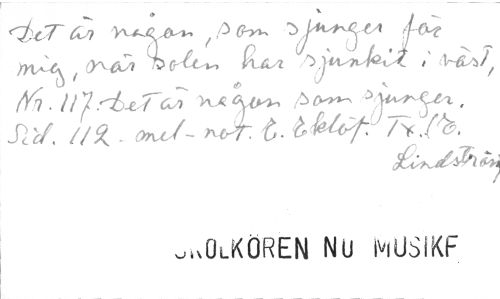 Det är någon, som sjunger för
mig, när solen har sjunkit i väst,
Nr. 117. Det är någon som sjunger.
Sid. 112 - mel-not. E. Eklöf. Tx. E.
Lindström
SKOLKÖREN NU MUSIKF